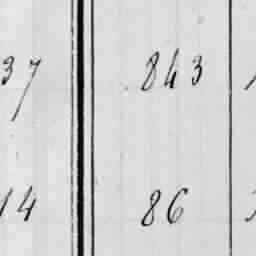 37 843
14 86